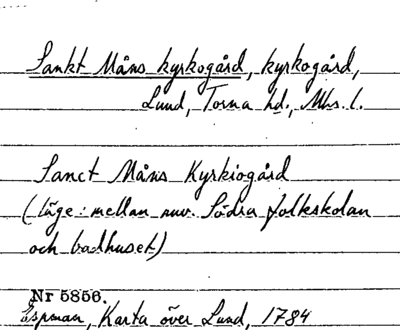 Sankt Måns kyrkogård, kyrkogård,
Lund, Torna hd., Mhs. l.
Sanct Måns Kyrkiogård
(läge: mellan nuv. Södra folkskolan
och badhuset)
Nr 5856.
Espman, Karta över Lund, 1784